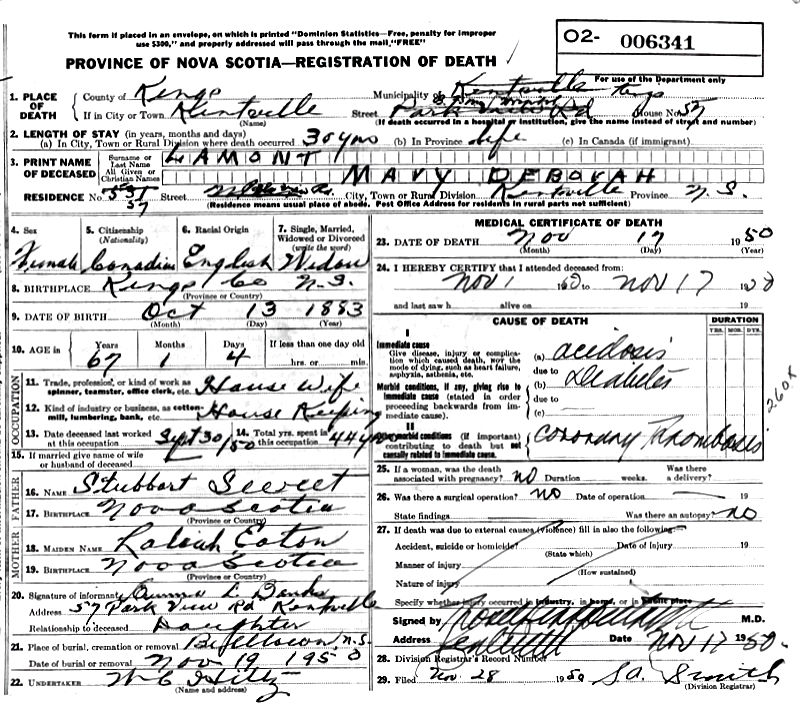 This form if placed in an envelope, on which is printed "Dominion Statistics—Free, penalty for improper
use $300," and properly addressed will pass through the mail "FREE"
O2- 006341
PROVINCE OF NOVA SCOTIA—REGISTRATION OF DEATH
For use of the Department only
1. PLACE OF DEATH
County of Kings Municipality of Kentville
If in City or Town Kentville Street Park Rd House No 57
(Name) (If death occurred in a hospital or institution, give the name instead of street and number)
2. LENGTH OF STAY (in years, months and days)
(a) In City, Town or Rural Division where death occurred 30 yrs (b) In Province life (c) In Canada (if immigrant)
3. PRINT NAME OF DECEASED
Surname or Last Name LAMONT
All Given or Christian Names MAVY DEBORAH
RESIDENCE No 57 Street City, Town or Rural Division Kentville Province N.S.
(Residence means usual place of abode. Post Office Address for residents in rural parts not sufficient)
4. Sex 5. Citizenship (Nationality) 6. Racial Origin 7. Single, Married, Widowed or Divorced (write the word)
Female Canadian English Widow
8. BIRTHPLACE Kings Co N.S.
(Province or Country)
9. DATE OF BIRTH Oct 13 1883
(Month) (Day) (Year)
10. AGE in Years Months Days If less than one day old
67 1 4 hrs. or min.
OCCUPATION
11. Trade, profession, or kind of work as spinner, teamster, office clerk, etc. House Wife
12. Kind of industry or business, as cotton-mill, lumbering, bank, etc. House Keeping
13. Date deceased last worked at this occupation Sept 30/50 14. Total yrs. spent in this occupation 44 yrs
15. If married give name of wife or husband of deceased
FATHER
16. NAME Stubbart Sweet
17. BIRTHPLACE Nova Scotia
(Province or Country)
MOTHER
18. MAIDEN NAME Eaton
19. BIRTHPLACE Nova Scotia
(Province or Country)
20. Signature of informant L. Banks
Address 57 Park View Rd Kentville
Relationship to deceased Daughter
21. Place of burial, cremation or removal N.S.
Date of burial or removal Nov 19 1950
22. UNDERTAKER W C Hiltz
(Name and address)
MEDICAL CERTIFICATE OF DEATH
23. DATE OF DEATH Nov 17 1950
(Month) (Day) (Year)
24. I HEREBY CERTIFY that I attended deceased from:
Nov 1 19 to Nov 17 19
and last saw h alive on 19
CAUSE OF DEATH DURATION
YRS. MOS. DYS.
I
Immediate cause
Give disease, injury or complication which caused death, not the mode of dying, such as heart failure, asphyxia, asthenia, etc.
(a) acidosis
due to
Morbid conditions, if any, giving rise to immediate cause (stated in order proceeding backwards from immediate cause).
(b) Diabetes
due to
(c)
260x
II
Other morbid conditions (if important) contributing to death but not causally related to immediate cause.
Coronary Thrombosis
25. If a woman, was the death associated with pregnancy? no Duration weeks. Was there a delivery?
26. Was there a surgical operation? no Date of operation 19
State findings Was there an autopsy? no
27. If death was due to external causes (violence) fill in also the following:
Accident, suicide or homicide? Date of injury 19
(State which)
Manner of injury
(How sustained)
Nature of injury
Specify whether injury occurred in industry, in home, or in public place
Signed by M.D.
Address Date Nov 17 1950
28. Division Registrar's Record Number
29. Filed Nov. 28 1950 Smith
(Division Registrar)